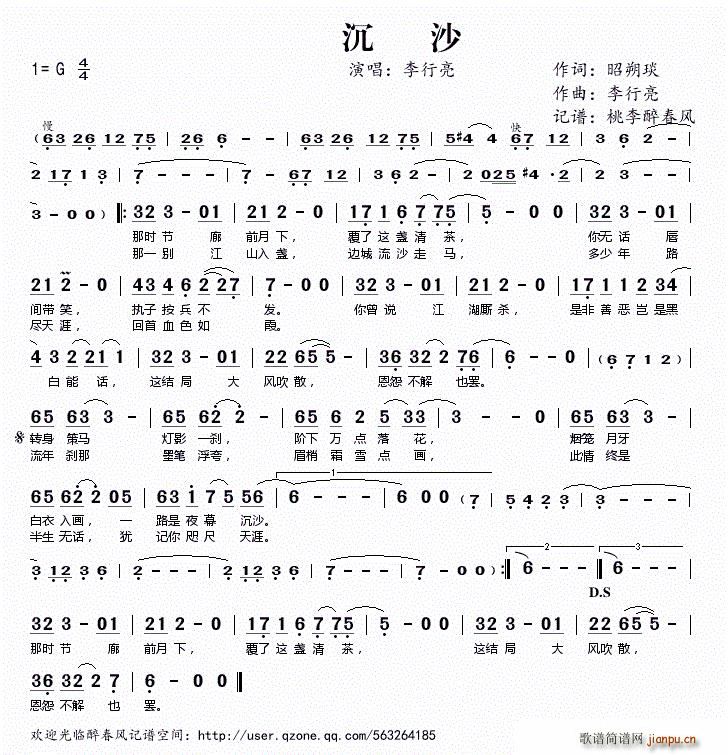 沉 沙
1=G 4/4 演唱：李行亮 作词：昭朔琰
作曲：李行亮
记谱：桃李醉春风
慢 快
(63 26 12 75 | 26 6 - - | 63 26 12 75 | 5#4 4 67 12 | 3 6 2 -
2 17 1 3 | 7 - - - | 7 - 67 12 | 2 025 #4·2 | 2 3 - -
3 - 00) ‖: 32 3 - 01 | 21 2 - 0 | 17 1 6 7 75 | 5 - 0 0 | 32 3 - 01
那时 节 廊 前月 下， 覆了 这 盏 清 茶， 你无 话 唇
那一 别 江 山入 盏， 边城 流 沙 走 马， 多少 年 路
21 2 - 0 | 43 46 2 27 | 7 - 00 | 32 3 - 01 | 21 2 - 0 | 17 1 2 34
间带 笑， 执子 按兵 不 发。 你曾 说 江 湖厮 杀， 是非 善 恶 岂是黑
尽天 涯， 回首 血色 如 霞。
4 3 2 21 1 | 32 3 - 01 | 22 65 5 - | 36 32 2 76 | 6 - 00 | (6 7 1 2)
白 能 话， 这结 局 大 风吹 散， 恩怨 不解 也罢。
65 63 3 - | 65 62 2 - | 65 6 2 5 33 | 3 - - 0 | 65 63 3 -
转身 策马 灯影 一刹， 阶下 万 点 落 花， 烟笼 月牙
流年 刹那 墨笔 浮夸， 眉梢 霜 雪 点 画， 此情 终是
65 62 2 05 | 63 1 75 56 | 6 - - - | 6 0 0 (7 | 5 42 3 | 3 - - -
1
白衣 入画， 一 路是 夜 幕 沉沙。
半生 无话， 犹 记你 咫 尺 天涯。
3 12 3 6 | 3 12 3 7 | 7 - - - | 7 - 0 0) :‖ 6 - - - ‖ 6 - - |
2 3
D.S
32 3 - 01 | 21 2 - 0 | 17 1 6 7 75 | 5 - 0 0 | 32 3 - 01 | 22 65 5 -
那时 节 廊 前月 下， 覆了 这 盏 清 茶， 这结 局 大 风吹 散，
36 32 2 7 | 6 - - 0 ‖
恩怨 不解 也 罢。
欢迎光临醉春风记谱空间：http://user.qzone.qq.com/563264185
歌谱简谱网
jianpu.cn